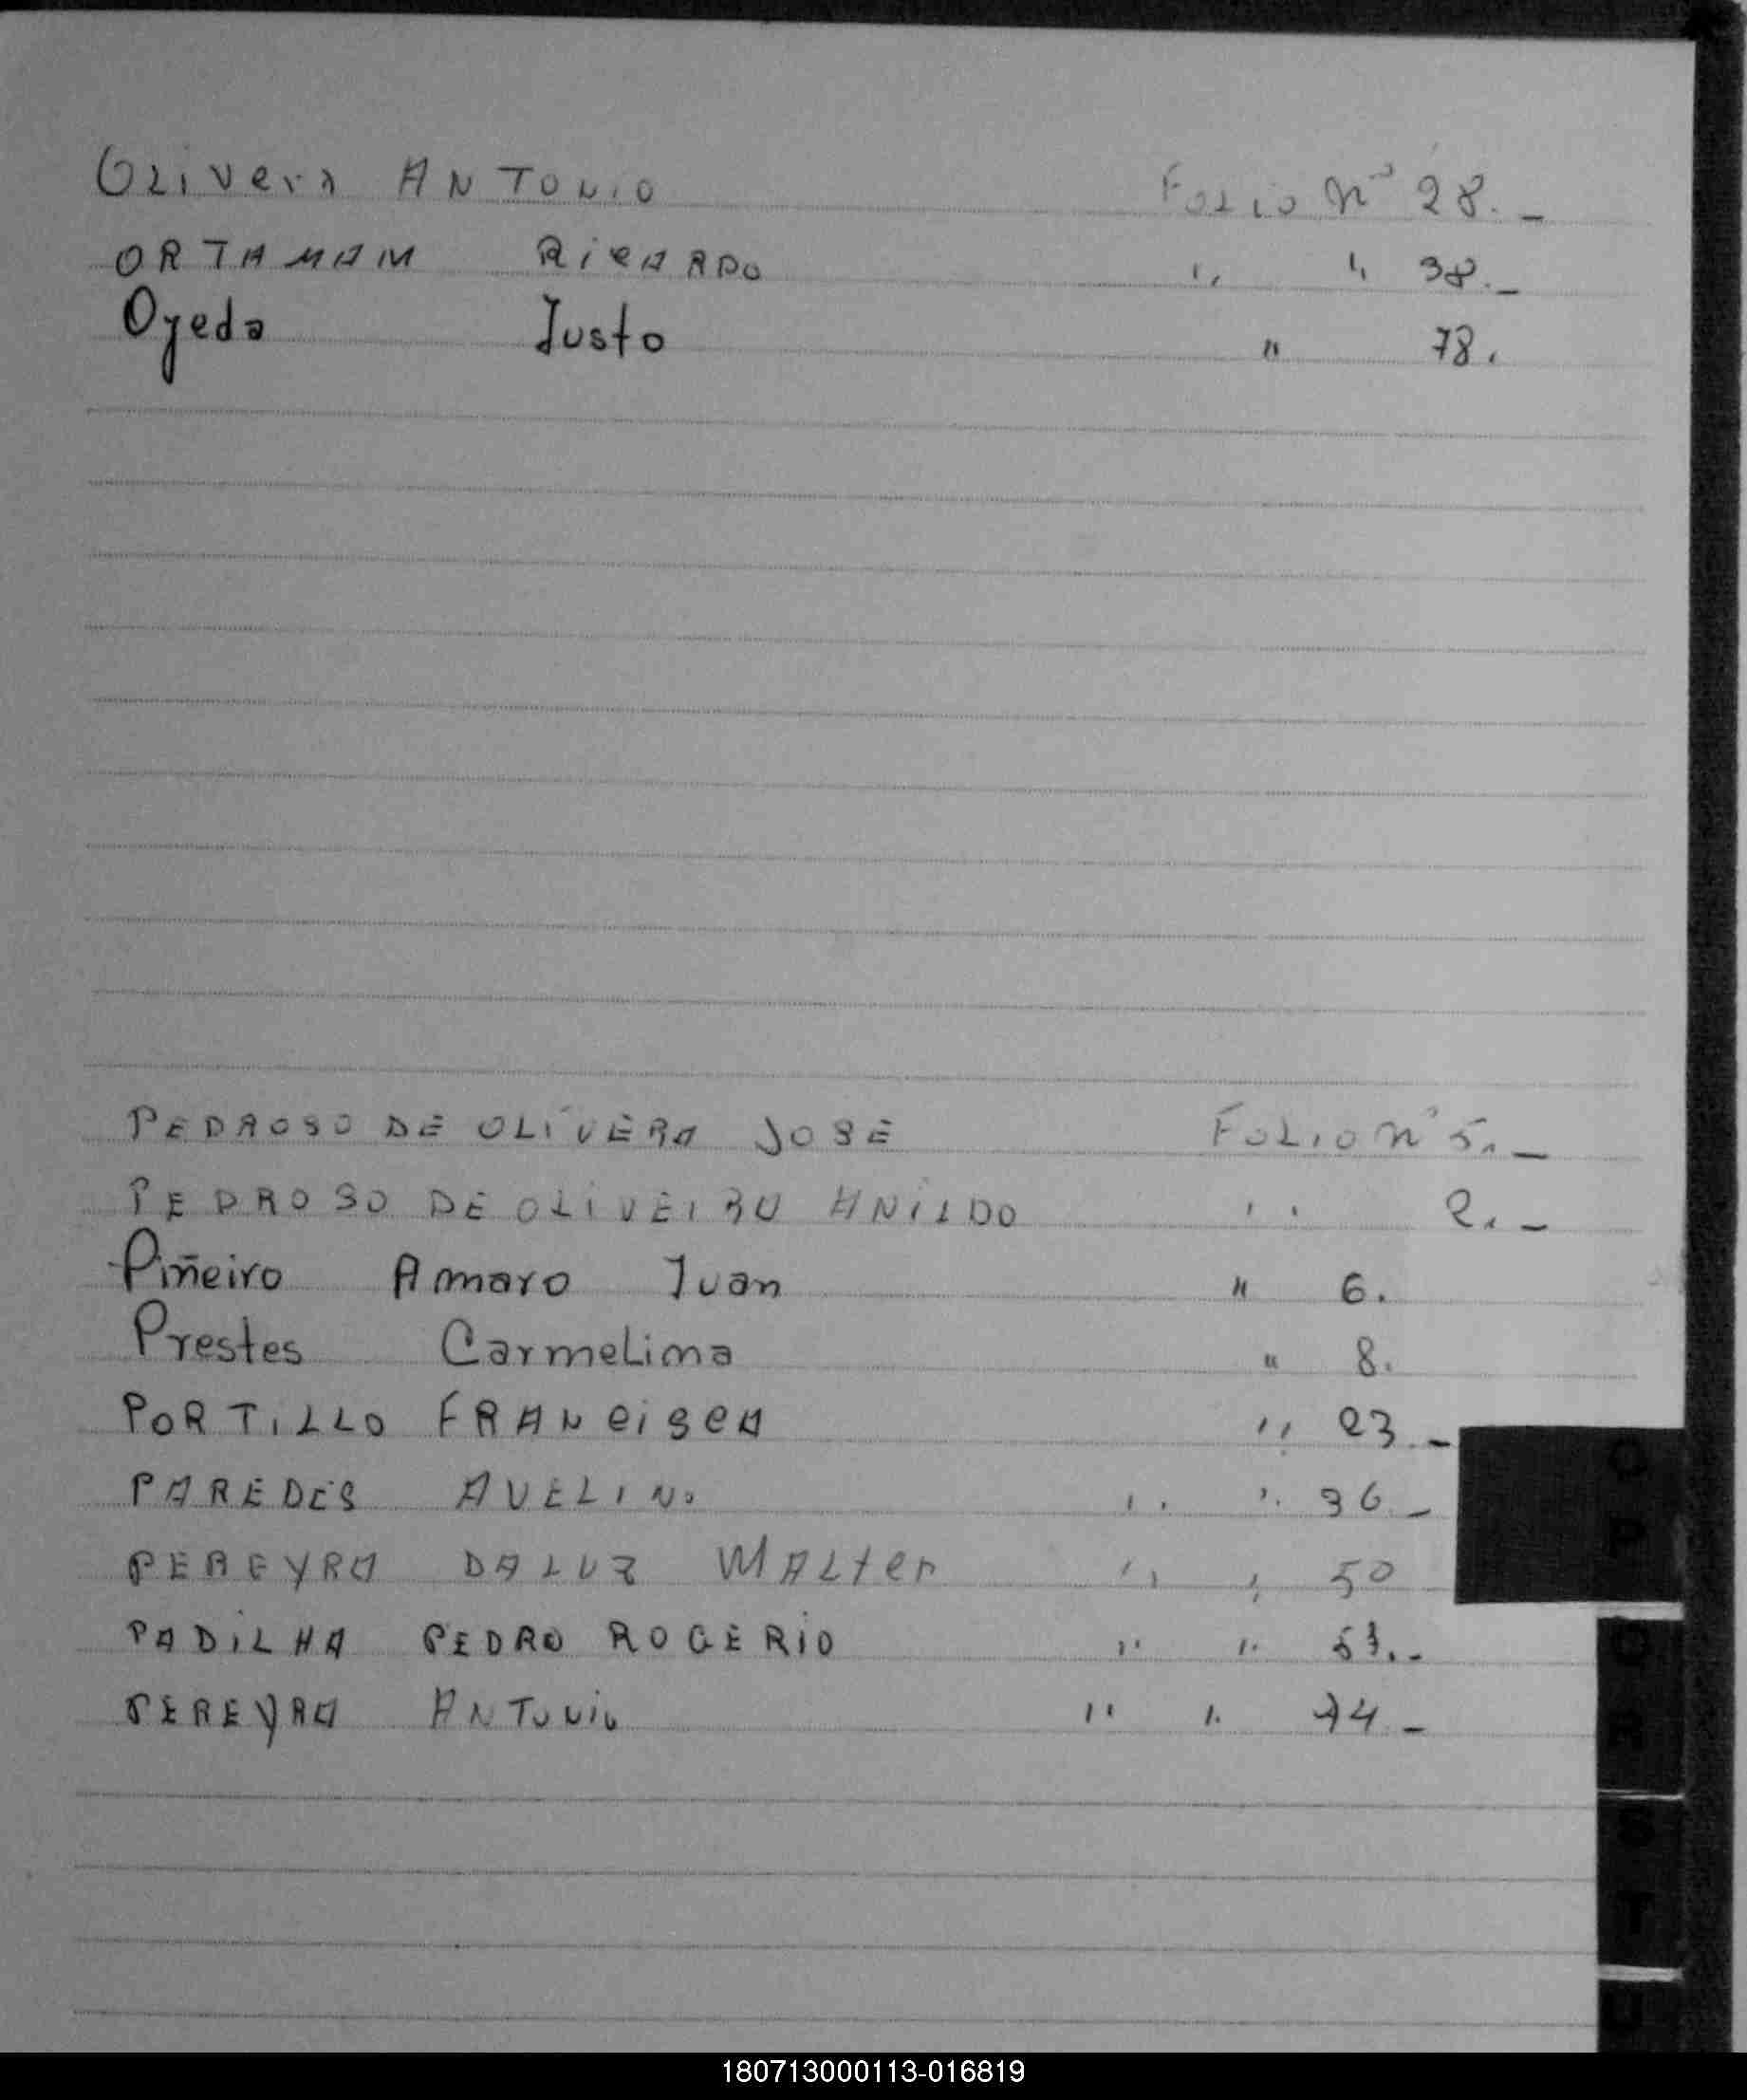 Olivera ANTONIO Folio Nº 28.-
ORTAMAM RicARDO " " 38.-
Ojeda Justo " 78.
PEDROSO DE OLIVERA JOSE FOLIO Nº 5.-
PEDROSO DE OLIVEIRO ANILDO " 2.-
Piñeiro Amaro Juan " 6.
Prestes CarmeLima " 8.
PORTILLO FRANcisCA " 23.-
PAREDES AVELINO " " 36.-
PEREYRA DALUZ WALter " " 50
PADILHA PEDRO ROGERIO " " 53.-
PEREYRA ANTONIO " " 74.-
O
P
Q
R
S
T
U
180713000113-016819